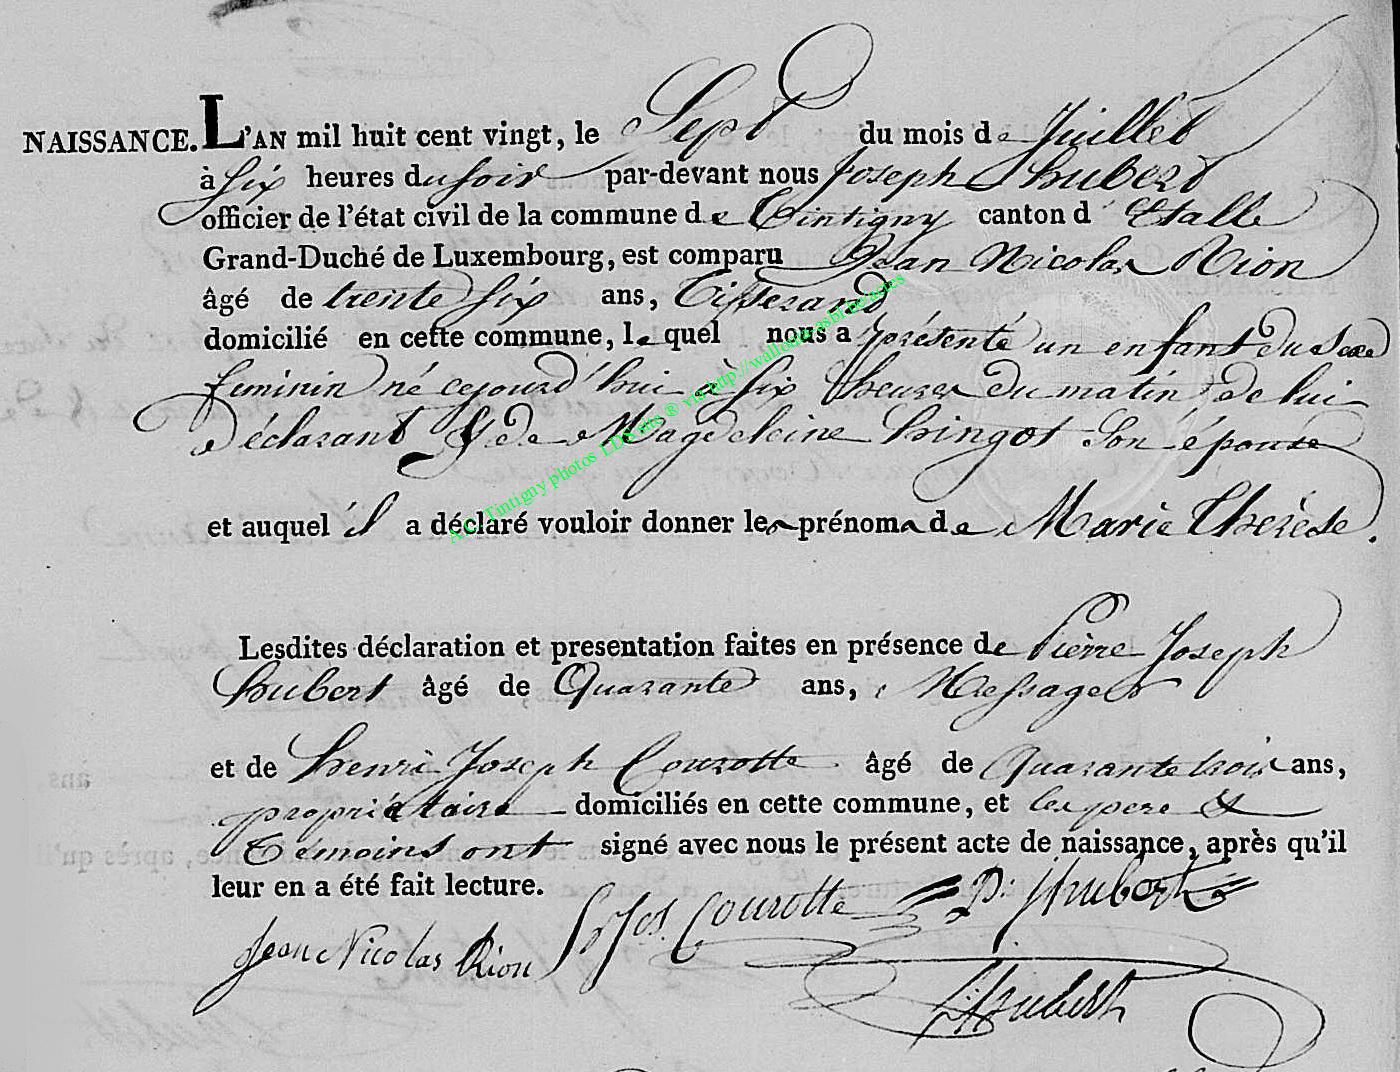 NAISSANCE. L'AN mil huit cent vingt, le Sept du mois de Juillet
à six heures du soir par-devant nous Joseph hubert
officier de l'état civil de la commune de Tintigny canton d'Etalle
Grand-Duché de Luxembourg, est comparu Jean Nicolas Rion
âgé de trente six ans, Tisserand
domicilié en cette commune, le quel nous a présenté un enfant du Sexe
feminin né cejourd'hui à six heures du matin de lui
déclarant & de Magdeleine hingot Son épouse
et auquel il a déclaré vouloir donner les prénoms de Marie Therèse.
Lesdites déclaration et presentation faites en présence de Pierre Joseph
hubert âgé de Quarante ans, Messager
et de henri Joseph Courotte âgé de Quarante trois ans,
propriétaire domiciliés en cette commune, et les pere &
Témoins ont signé avec nous le présent acte de naissance, après qu'il
leur en a été fait lecture.
Jean Nicolas Rion Jos. Courotte P. J hubert
J hubert
A.C. Tintigny photos LDS site ® via http://wallonia.asbl.be/actes